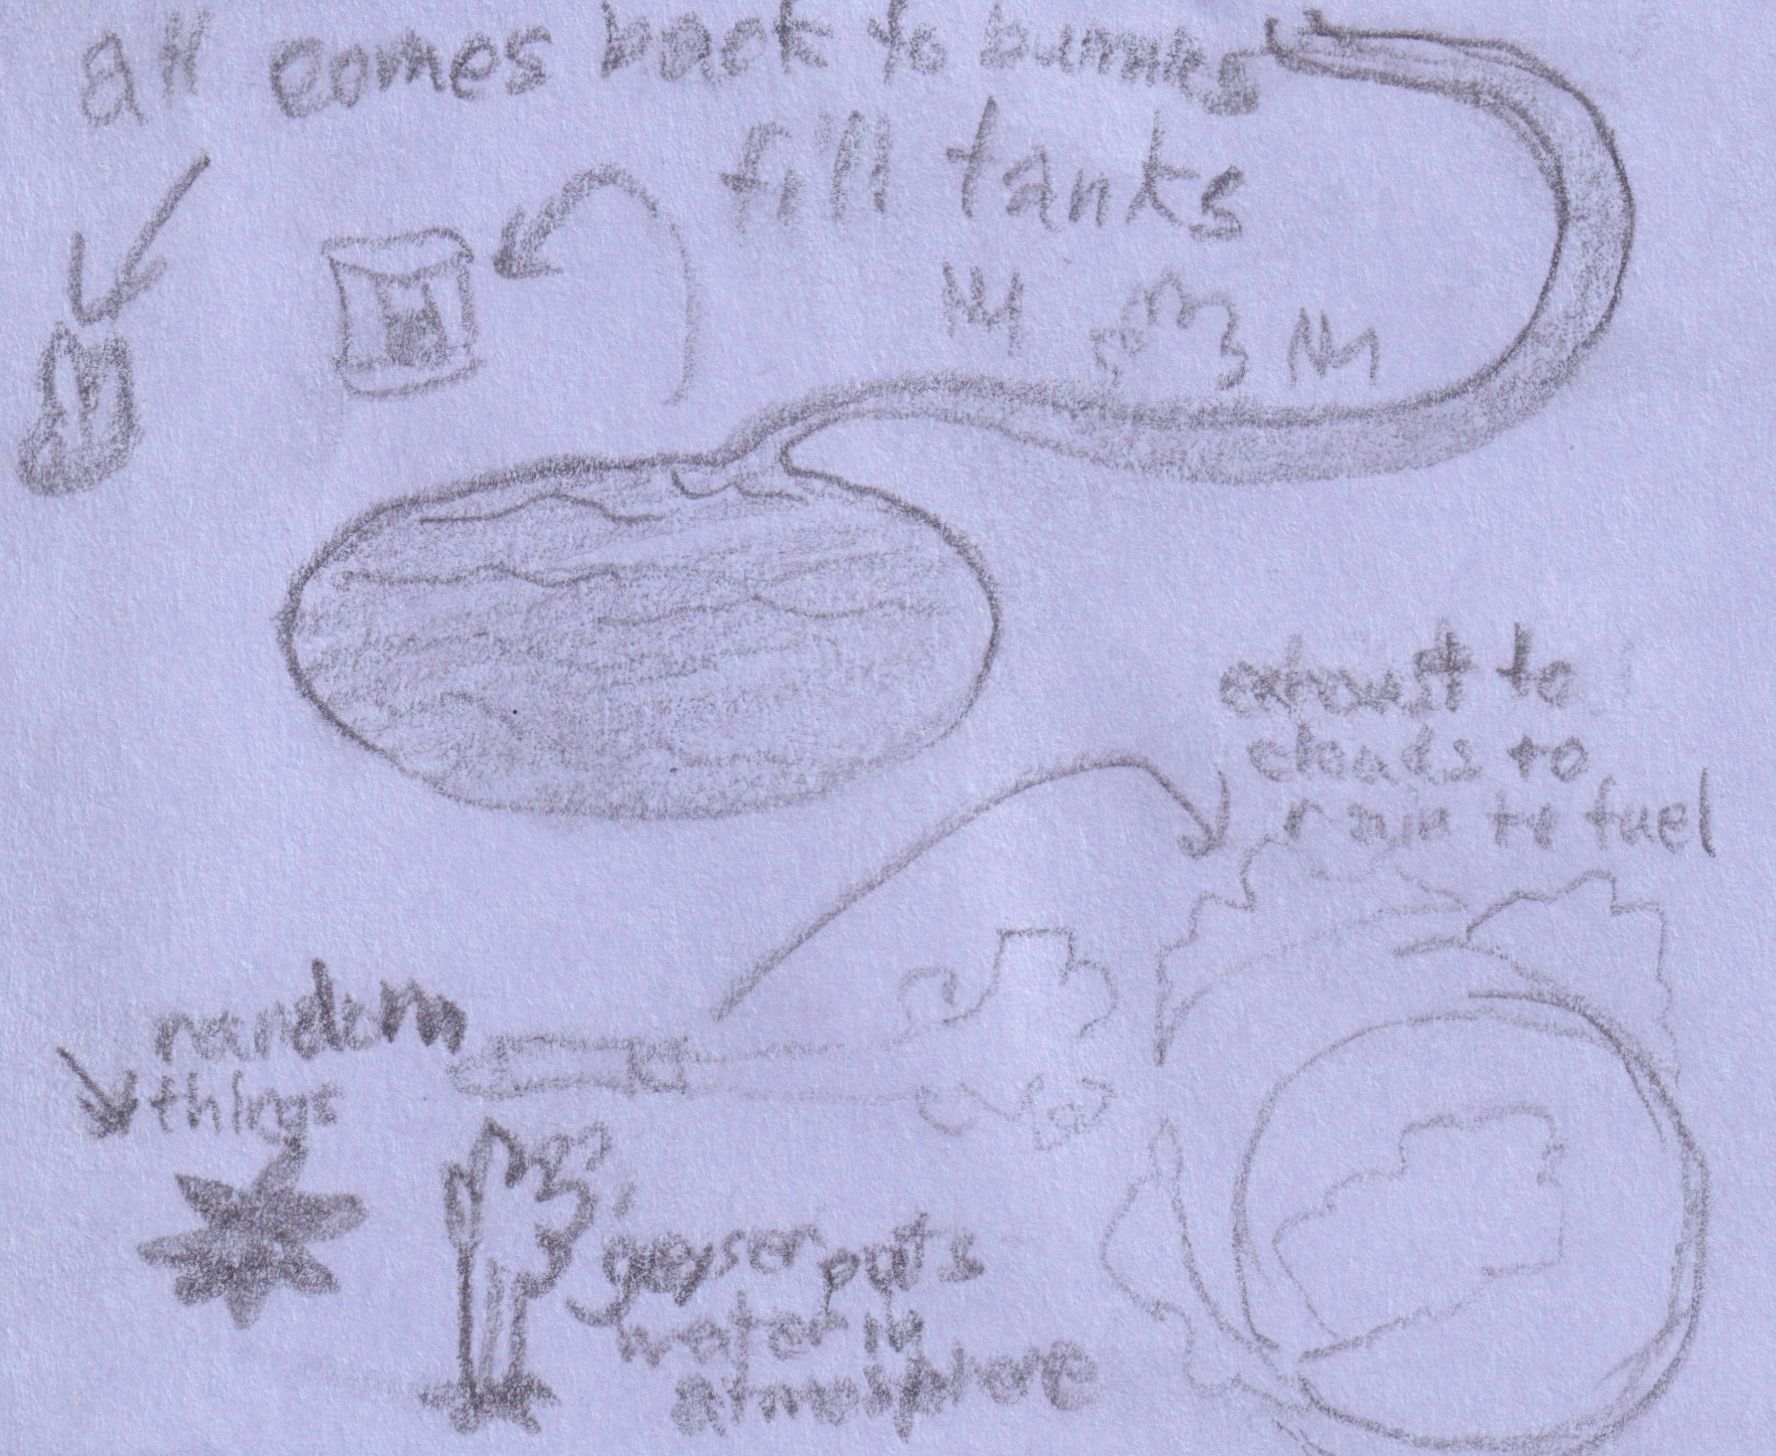 all comes back to bunnies
fill tanks
exhaust to
clouds to
rain to fuel
random
things
geyser puts
water in
atmosphere